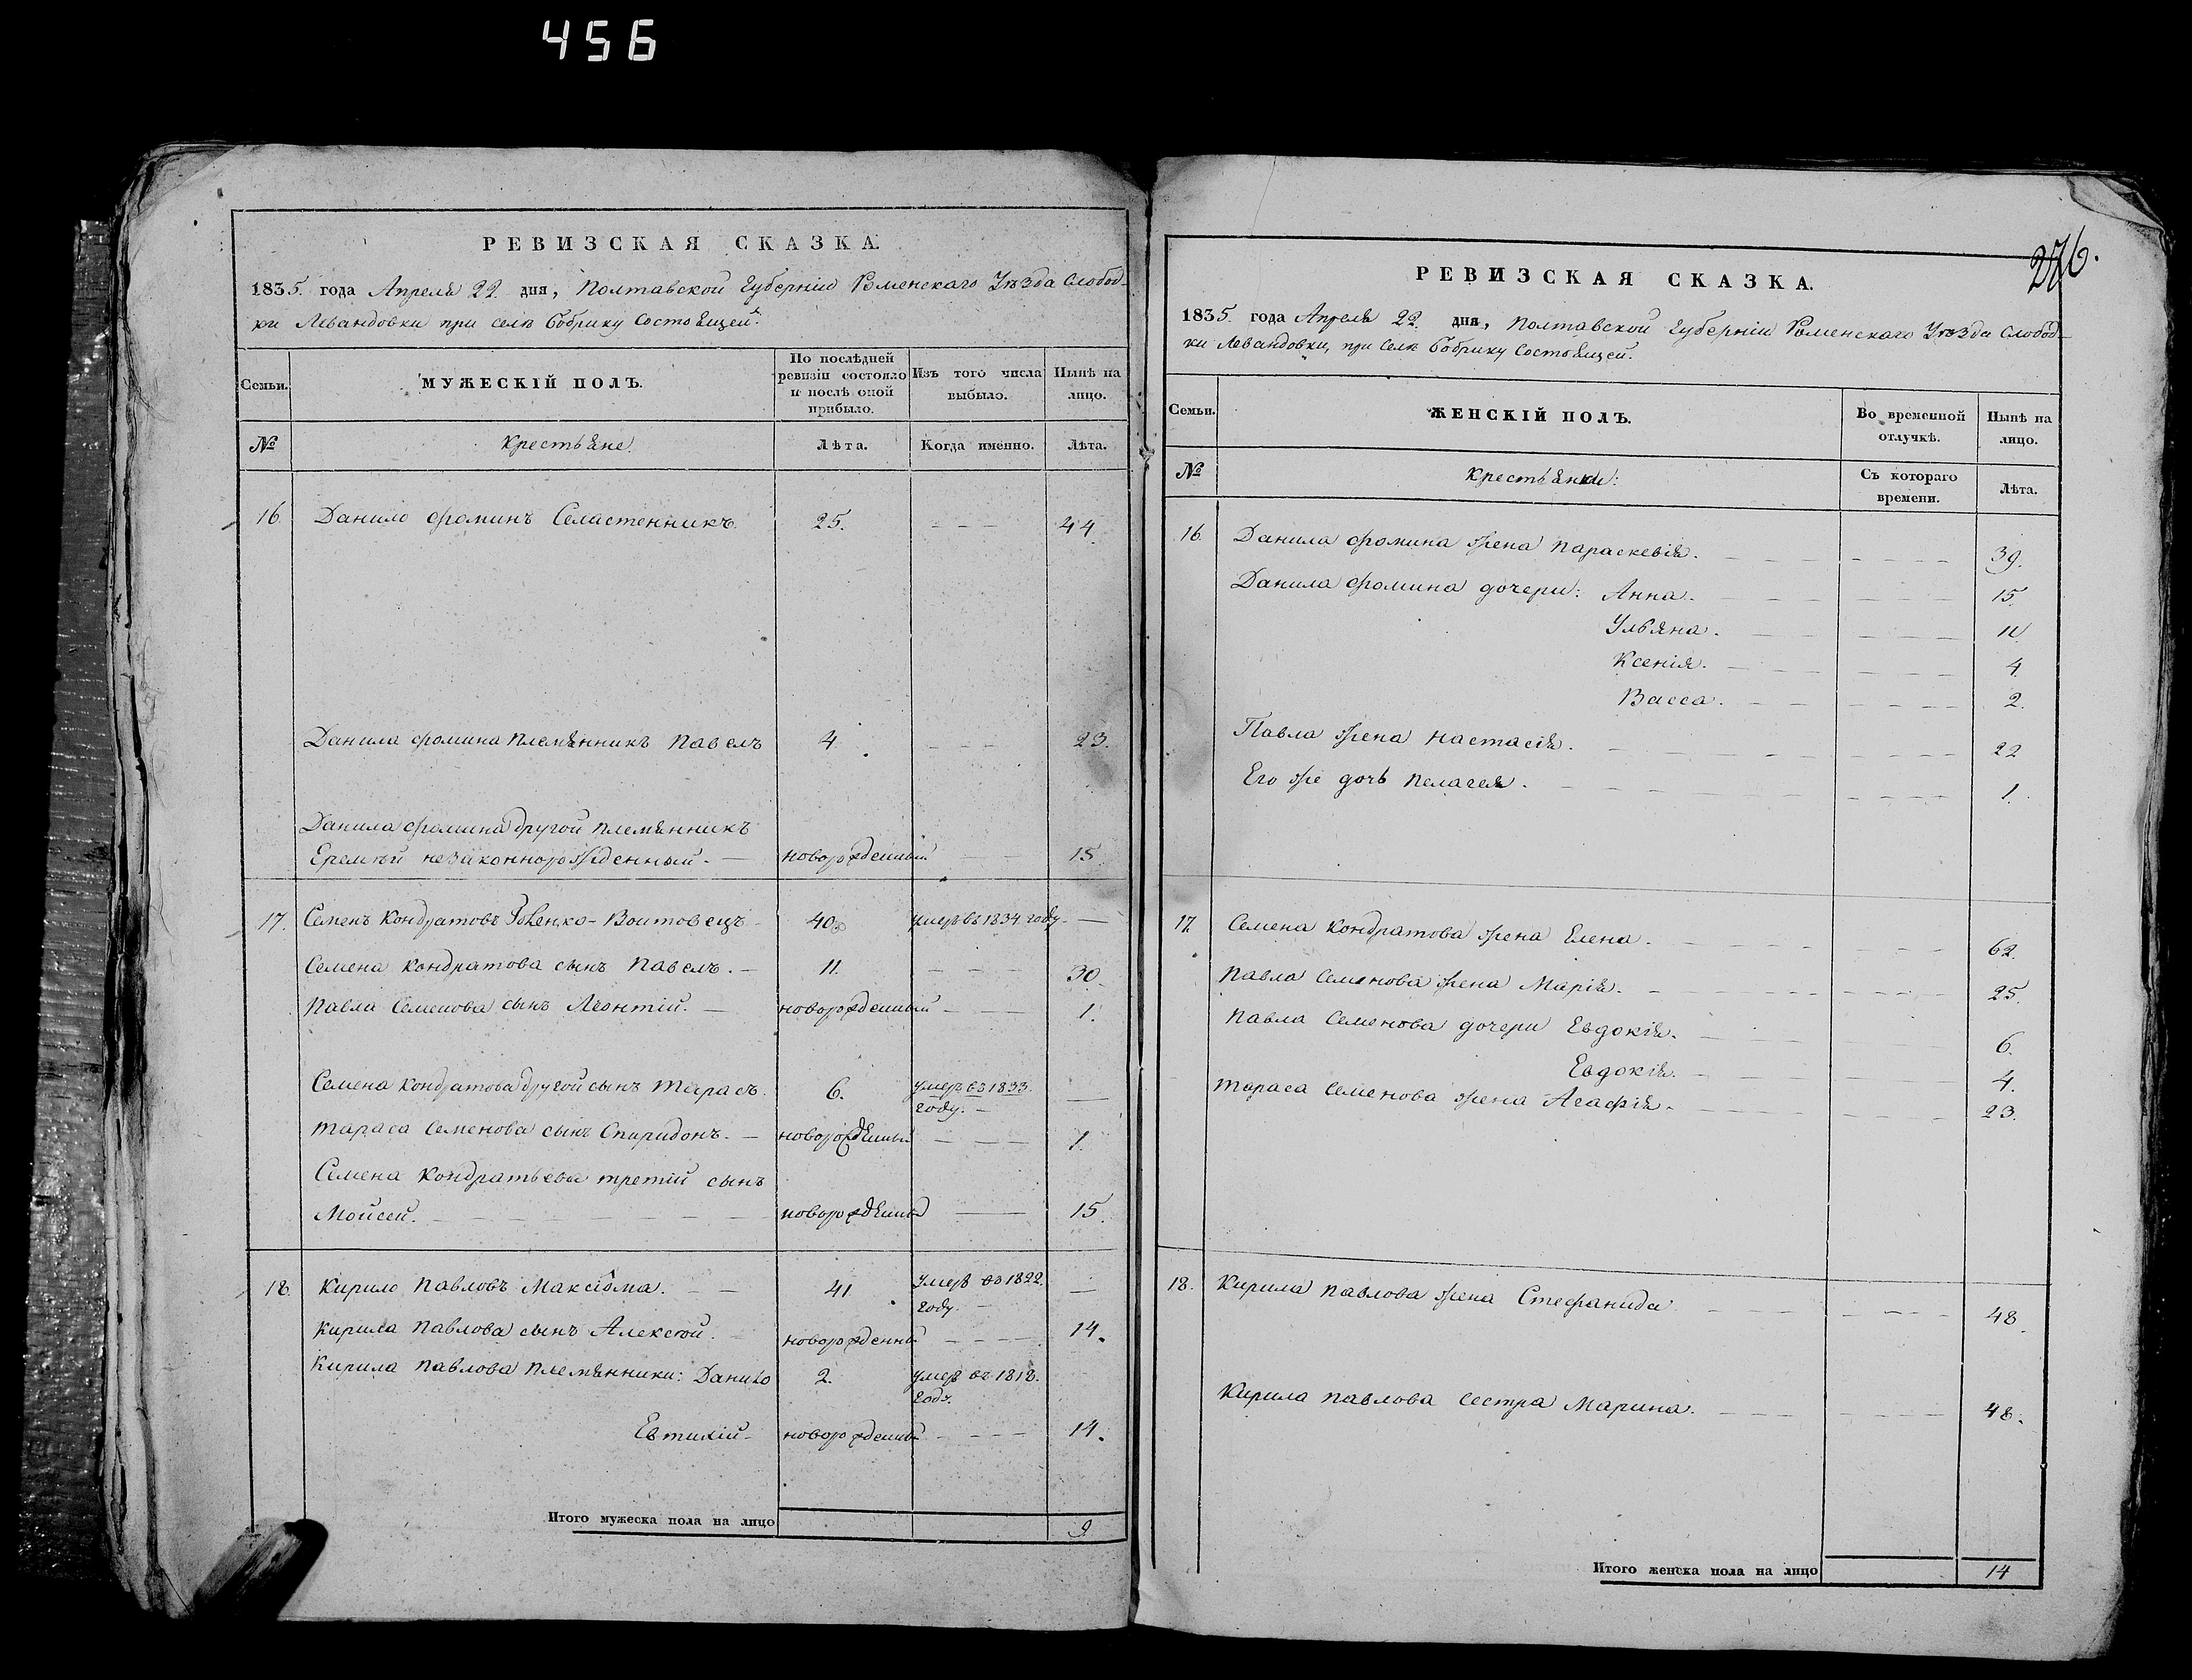 456
РЕВИЗСКАЯ СКАЗКА.
1835. года Апреля 22. дня, Полтавской Губерніи Роменскаго Уѣзда Слобод-
ки Левандовки при селѣ Бобрику Состоящей.
Семьи.
МУЖЕСКІЙ ПОЛЪ.
По послѣдней ревизіи состояло и послѣ оной прибыло.
Изъ того числа выбыло.
Нынѣ на лицо.
№
Крестьяне.
Лѣта.
Когда именно.
Лѣта.
16. Данило Фоминъ Селастенникъ. 25. - - - 44.
Данила Фомина племянникъ Павелъ 4. - - - 23.
Данила Фомина другой племянникъ
Еремѣй незаконнорожденный. — новорожденный — 15.
17. Семенъ Кондратовъ - Воитовецъ 40. умеръ въ 1834 году. —
Семена Кондратова сынъ Павелъ. — 11. - - 30.
Павла Семенова сынъ Леонтій. — новорожденный - — - 1.
Семена Кондратова другой сынъ Тарасъ. 6. умеръ въ 1833. —
году. —
Тараса Семенова сынъ Спиридонъ. — новорожденный — — 1.
Семена Кондратьева третій сынъ
Мойсей. — — — новорожденный —— 15.
18. Кирило Павловъ Максіома. — — 41 Умеръ въ 1822. —
году. —
Кирила Павлова сынъ Алексѣй. — новорожденный - - - - 14.
Кирила Павлова племянники: Данило 2. умеръ въ 1818.
году.
Евтихій — новорожденный - - - 14.
Итого мужеска пола на лицо 9.
276.
РЕВИЗСКАЯ СКАЗКА.
1835. года Апреля 22. дня, Полтавской Губерніи Роменскаго Уѣзда Слобод-
ки Левандовки, при селѣ Бобрику Состоящей.
Семьи.
ЖЕНСКІЙ ПОЛЪ.
Во временной отлучкѣ.
Нынѣ на лицо.
№
Крестьянки:
Съ котораго времени.
Лѣта.
16. Данила Фомина жена Параскевія. - - - 39.
Данила Фомина дочери: Анна. - - - 15.
Ульяна. - - -
Ксенія. - - - 4.
Васса. - - - 2.
Павла жена Настасія. - - - 22
Его же дочь Пелагея. - - - 1.
17. Семена Кондратова жена Елена. - - - 62.
Павла Семенова жена Марія. - - - 25.
Павла Семенова дочери Евдокія. - - - 6.
Евдокія. - - - 4.
Тараса Семенова жена Агафія. - - - 23.
18. Кирила Павлова жена Стефанида. - - - 48.
Кирила Павлова сестра Марина. - - - 48.
Итого женска пола на лицо 14